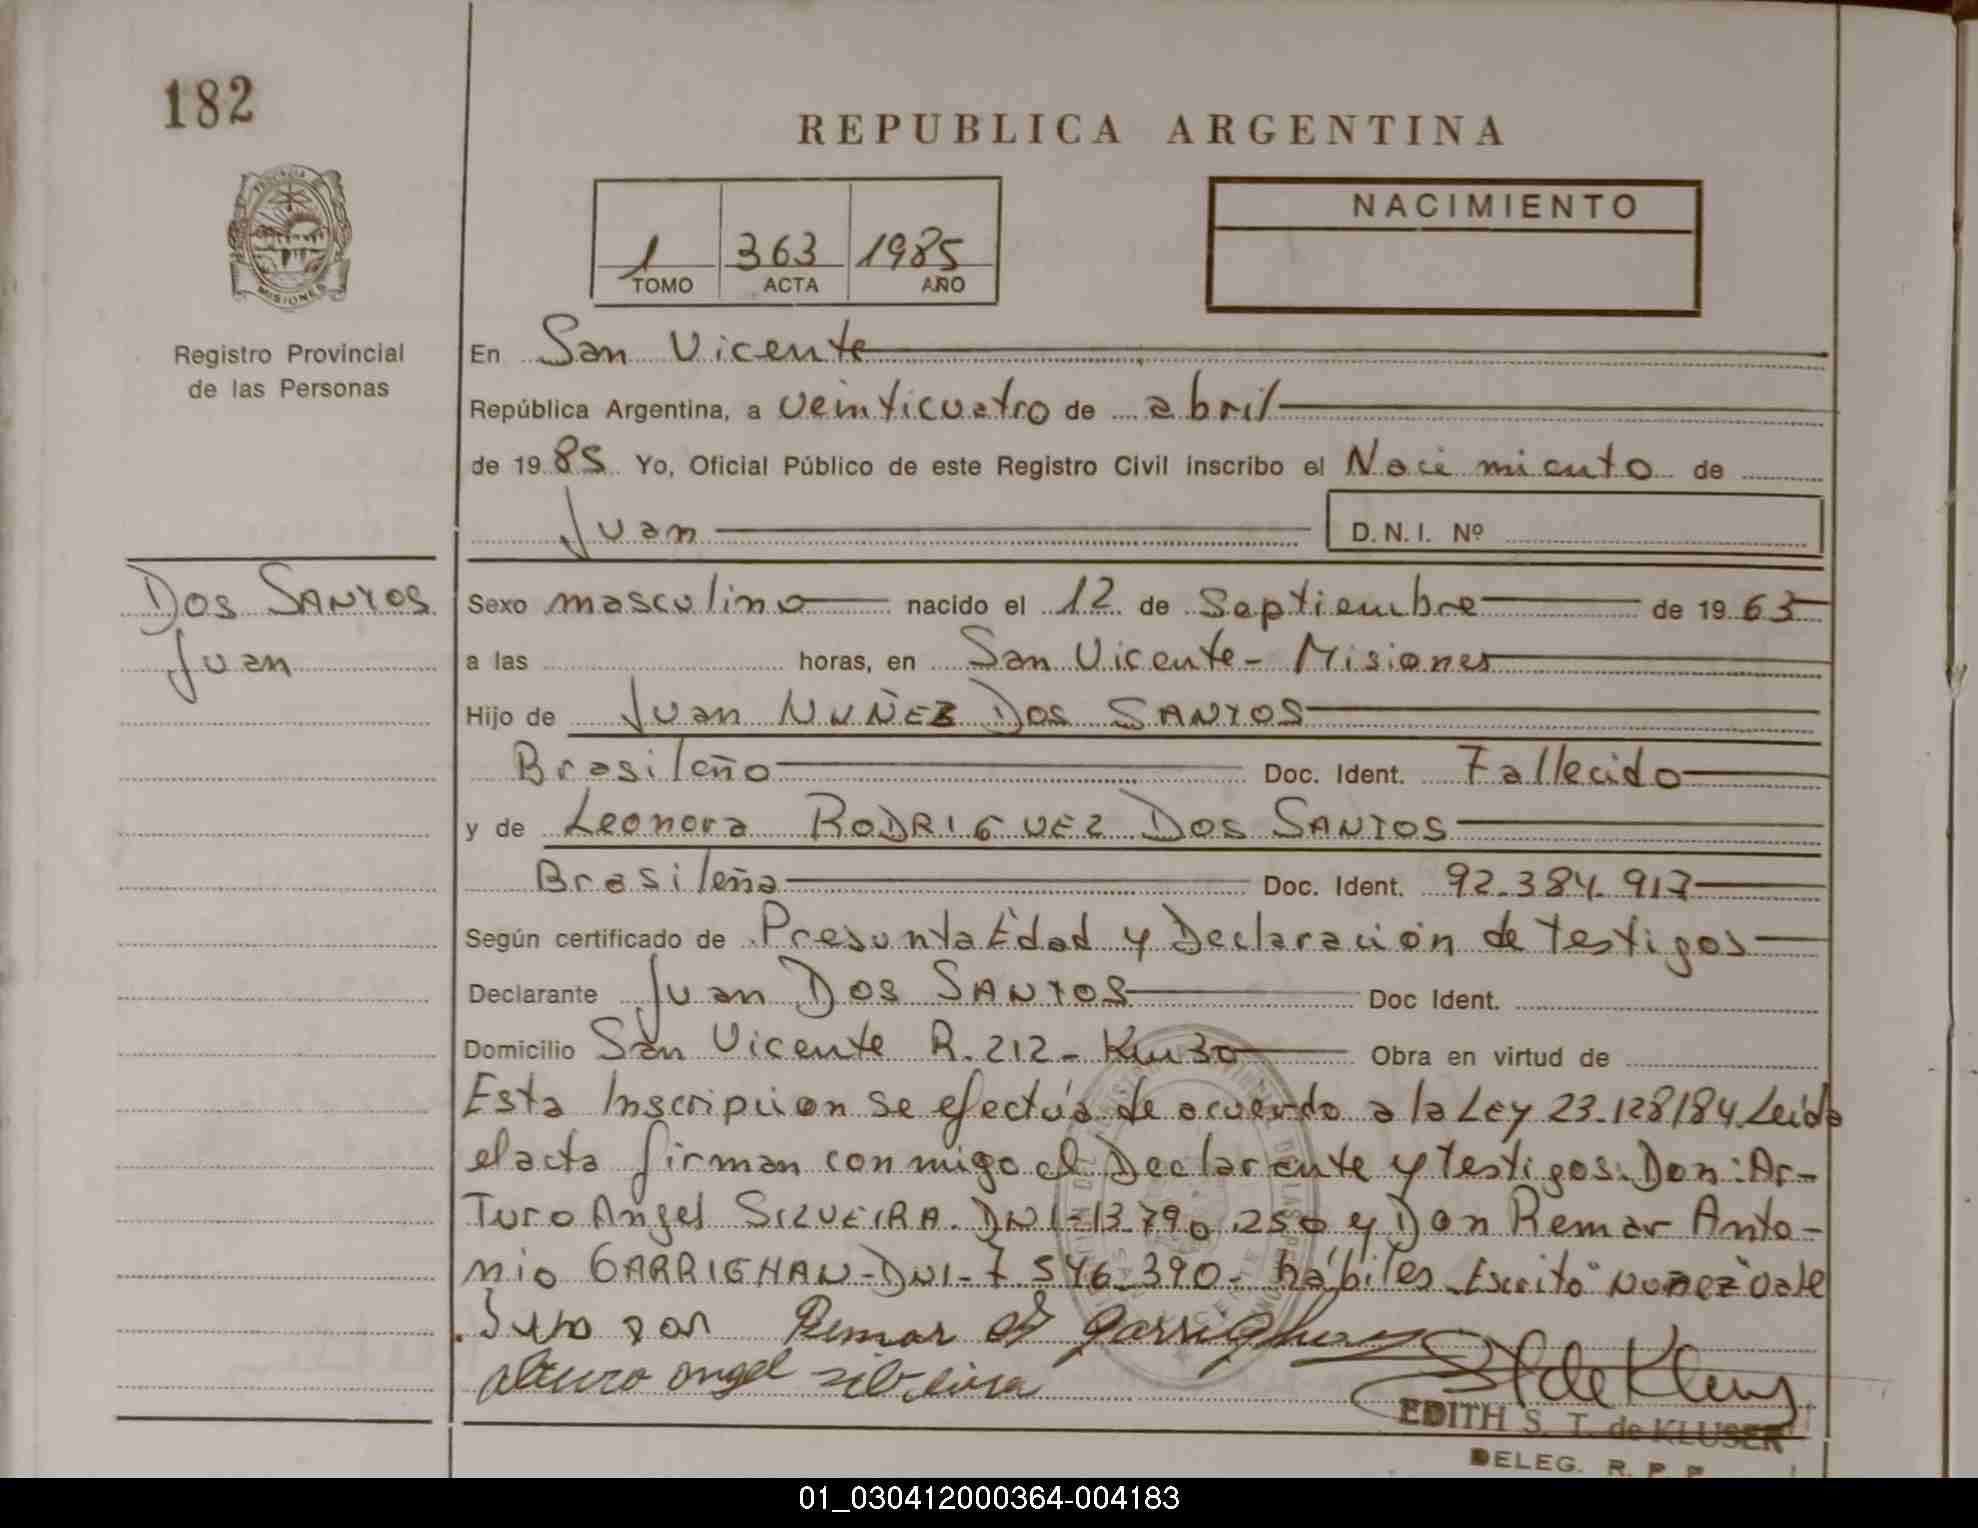 182
REPUBLICA ARGENTINA
PROVINCIA
MISIONES
Registro Provincial
de las Personas
1 363 1985
TOMO ACTA AÑO
NACIMIENTO
En San Vicente
República Argentina, a veinticuatro de abril
de 1985 Yo, Oficial Público de este Registro Civil inscribo el Nacimiento de
Juan D.N.I. Nº
Dos SANTOS
Juan
Sexo masculino nacido el 12 de Septiembre de 1963
a las horas, en San Vicente - Misiones
Hijo de Juan NUÑEZ Dos SANTOS
Brasileño Doc. Ident. Fallecido
y de Leonora RODRIGUEZ Dos SANTOS
Brasileña Doc. Ident. 92.384.917
Según certificado de Presunta Edad y Declaración de testigos
Declarante Juan Dos SANTOS Doc Ident.
Domicilio San Vicente R. 212 - Km 30 Obra en virtud de
Esta Inscripcion se efectúa de acuerdo a la Ley 23.128/84 Leida
el acta firman conmigo el Declarante y testigos. Don: Ar-
Turo Angel SILVEIRA. DNI-13.790.250 y Don Remar Anto-
nio GARRIGHAN-DNI-7.546.390- hábiles. Escrito "Nuñez" Vale
Remar
arturo angel silveira
EDITH S. T. de KLUSER
DELEG. R. P. P.
01_030412000364-004183